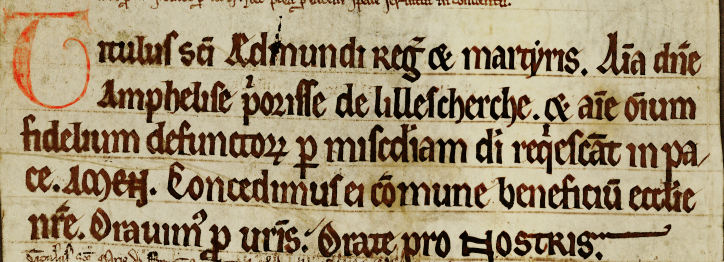 Titulus sc̄i Ædmundi Reg̃ & martyris. Aīa dn̄e
Amphelise p̓orisse de lillescherche. & aīe om̄ium
fidelium defunctoꝝ ꝑ mis̄cdiam dī req̓escāt in pa-
ce. AMEN. Concedimus ei cōmune beneficiū eccl̄ie
nr̄e. Orauim᷒ ꝓ ur̄is: Orate pro NOSTRIS.